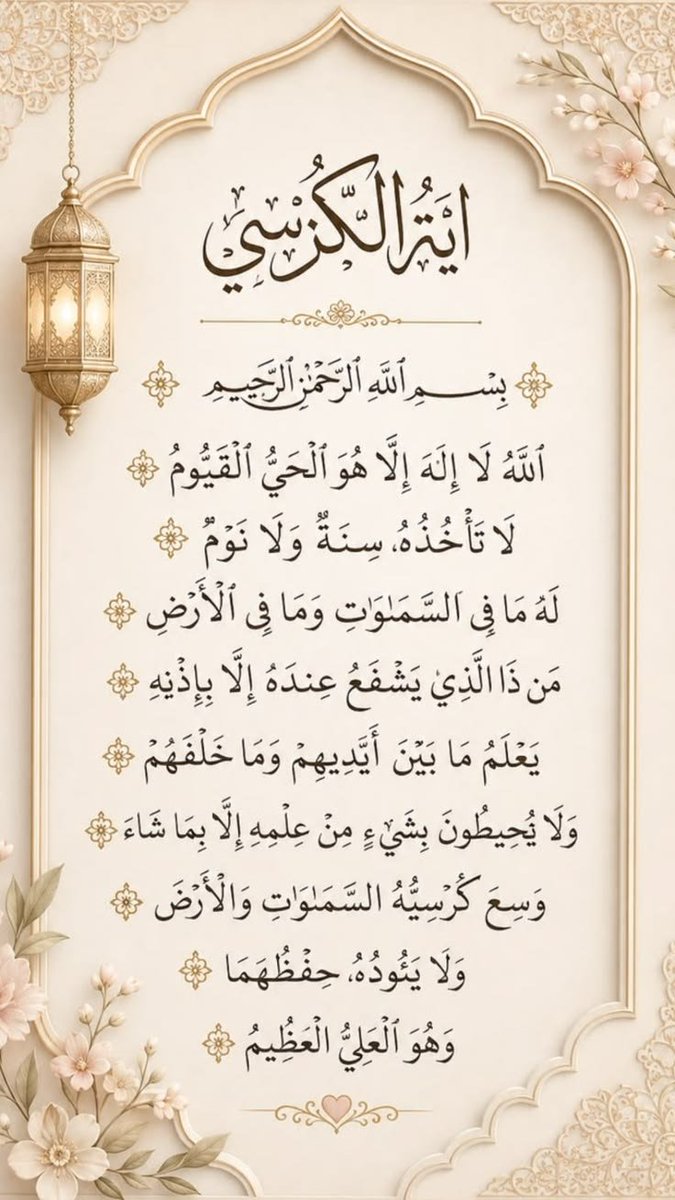 ايَةُ الْكُرْسِي
بِسْمِ ٱللَّهِ ٱلرَّحْمَٰنِ ٱلرَّحِيمِ
ٱللَّهُ لَا إِلَٰهَ إِلَّا هُوَ ٱلْحَيُّ ٱلْقَيُّومُ
لَا تَأْخُذُهُۥ سِنَةٌ وَلَا نَوْمٌ
لَهُ مَا فِى ٱلسَّمَٰوَٰتِ وَمَا فِى ٱلْأَرْضِ
مَن ذَا الَّذِي يَشْفَعُ عِندَهُ إِلَّا بِإِذْنِهِ
يَعْلَمُ مَا بَيْنَ أَيْدِيهِمْ وَمَا خَلْفَهُمْ
وَلَا يُحِيطُونَ بِشَيْءٍ مِنْ عِلْمِهِ إِلَّا بِمَا شَاءَ
وَسِعَ كُرْسِيُّهُ السَّمَٰوَٰتِ وَالْأَرْضَ
وَلَا يَئُودُهُۥ حِفْظُهُمَا
وَهُوَ ٱلْعَلِيُّ الْعَظِيمُ